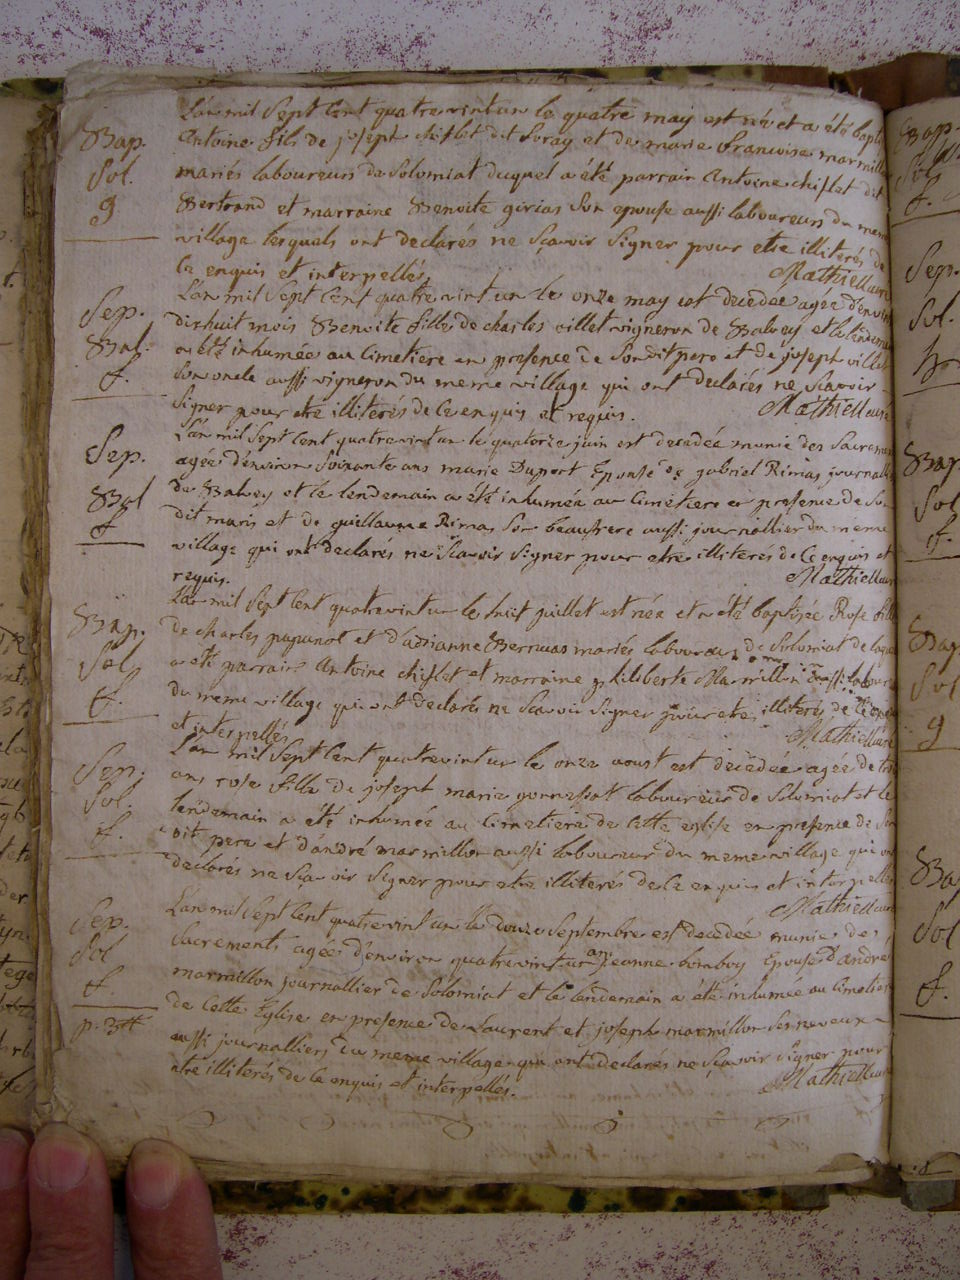 L'an mil Sept Cent quatre vint un le quatre may est né et a été bapti
Bap.
Antoine fils de joseph chiflet dit Soray et de marie francoise marmillon
Sol.
mariés laboureurs de Solomiat duquel a été parrain Antoine chiflet dit
g
Bertrand et marraine Benoite girias Son epouse aussi laboureurs du meme
village lesquels ont declarés ne Scavoir Signer pour etre illiterés de
Ce enquis et interpellés. Mathieu curé
L'an mil Sept Cent quatre vint un le onze may est decedée agée d'environ
Sep.
dixhuit mois Benoite fille de charles villet vigneron de Balvey et le lendemain
Bal.
a été inhumée au Cimetiere en presence de Son dit pere et de joseph villet
f.
Son oncle aussi vigneron du meme village qui ont declarés ne Scavoir
Signer pour etre illiterés de Ce enquis et requis. Mathieu curé
L'an mil Sept Cent quatre vint un le quatorze juin est decedée munie des Sacremens
Sep.
agée d'environ Soixante ans marie Duport Epouse de gabriel Rimas journallier
Bal
de Balvey et le lendemain a été inhumée au Cimetiere en presence de Son
f
dit maris et de guillaume Rimas Son beaufrere aussi journallier du meme
village qui ont declarés ne Scavoir Signer pour etre illiterés de Ce enquis et
requis. Mathieu curé
L'an mil Sept Cent quatre vint un le huit juillet est née et a été baptisée Rose fille
Bap.
de charles papunot et d'adrianne Bernuas mariés laboureurs de Solomiat de laquelle
Sol
a été parrain Antoine chiflet et marraine philiberte Marmillon aussi laboureurs
f.
du meme village qui ont declarés ne Scavoir Signer pour etre illiterés de Ce enquis
et interpellés. Mathieu curé
L'an mil Sept Cent quatre vint un le onze aoust est decedée agée de trois
Sep.
ans rose fille de joseph marie laboureur de Solomiat et le
Sol.
lendemain a été inhumée au Cimetiere de Cette eglise en presence de Son
f.
dit pere et d'andré marmillon aussi laboureur du meme village qui ont
declarés ne Scavoir Signer pour etre illiterés de Ce enquis et interpellés
Mathieu curé
L'an mil Sept Cent quatre vint un le douze Septembre est decedée munie des
Sep.
Sacrements agée d'environ quatre vint un ans jeanne bomboy Epouse d'andré
Sol
marmillon journallier de Solomiat et le lendemain a été inhumée au Cimetiere
f.
de Cette Eglise en presence de Laurent et joseph marmillon Ses neveux
aussi journalliers du meme village qui ont declarés ne Scavoir Signer pour
etre illiterés de Ce enquis et interpellés. Mathieu curé
Bap.
Sol
f.
Sep.
Sol.
Bap
Sol
f.
Bap
Sol
g
Ba
Sol
f.